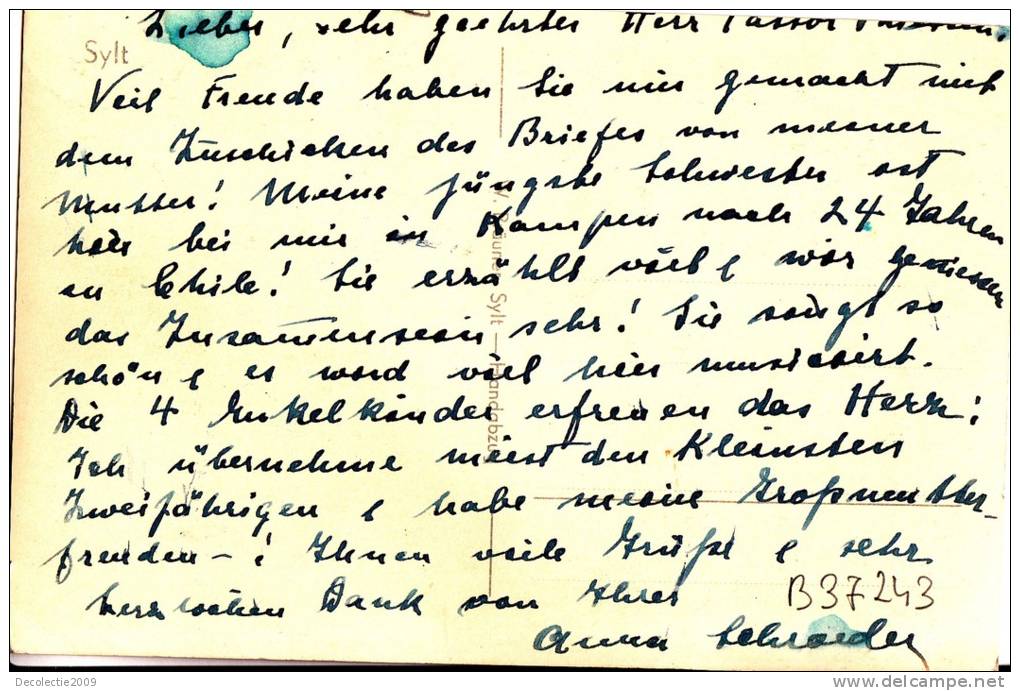 Lieber, sehr geehrter Herr Pastor
Sylt
Veil Freude haben Sie mir gemacht mit
dem Zuschicken des Briefes von meiner
Mutter! Meine jüngste Schwester ist
hier bei mir in Kampen nach 24 Jahren
in Chile! Sie erzählt viel & wir geniessen
das Zusammensein sehr! Sie singt so
schön & es wird viel hier musiziert.
Die 4 Enkelkinder erfreuen das Herz:
Ich übernehme meist den Kleinsten
Zweijährigen & habe meine Großmutter-
freuden-! Ihnen viele Grüße & sehr
herzlichen Dank von Ihrer
Anna Schroeder
B37243
Sylt — Handabzug
Decolectie2009
www.delcampe.net